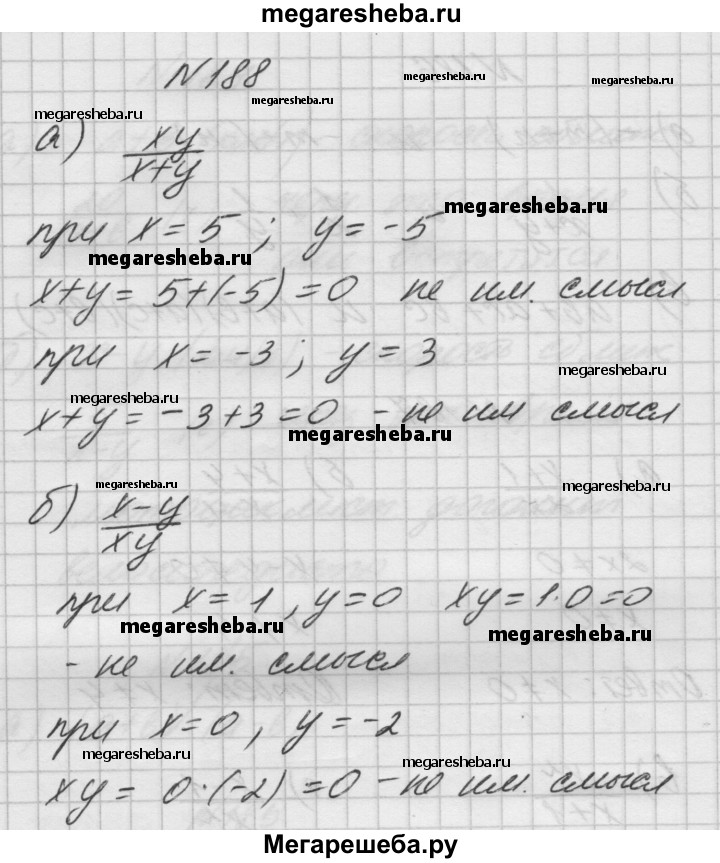 megaresheba.ru
N 188
megaresheba.ru
megaresheba.ru
megaresheba.ru
megaresheba.ru
а) xy/x+y
при x = 5 ; y = -5
megaresheba.ru
megaresheba.ru
x+y = 5+(-5) = 0 не им. смысл
при x = -3 ; y = 3
megaresheba.ru
megaresheba.ru
x+y = -3+3 = 0 - не им смысл
megaresheba.ru
megaresheba.ru
megaresheba.ru
б) x-y/xy
при x = 1 , y = 0 xy = 1·0 = 0
megaresheba.ru
megaresheba.ru
- не им. смысл
при x = 0 , y = -2
megaresheba.ru
megaresheba.ru
xy = 0·(-2) = 0 - не им. смысл
Мегарешеба.ру